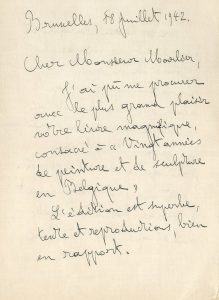 Bruxelles, 18 juillet 1942.
Cher Monsieur Maarlier,
J'ai pu me procurer
avec le plus grand plaisir
votre livre magnifique,
consacré à « Vingt années
de peinture et de sculpture
en Belgique »
L'édition est superbe,
texte et reproductions, bien
en rapport.